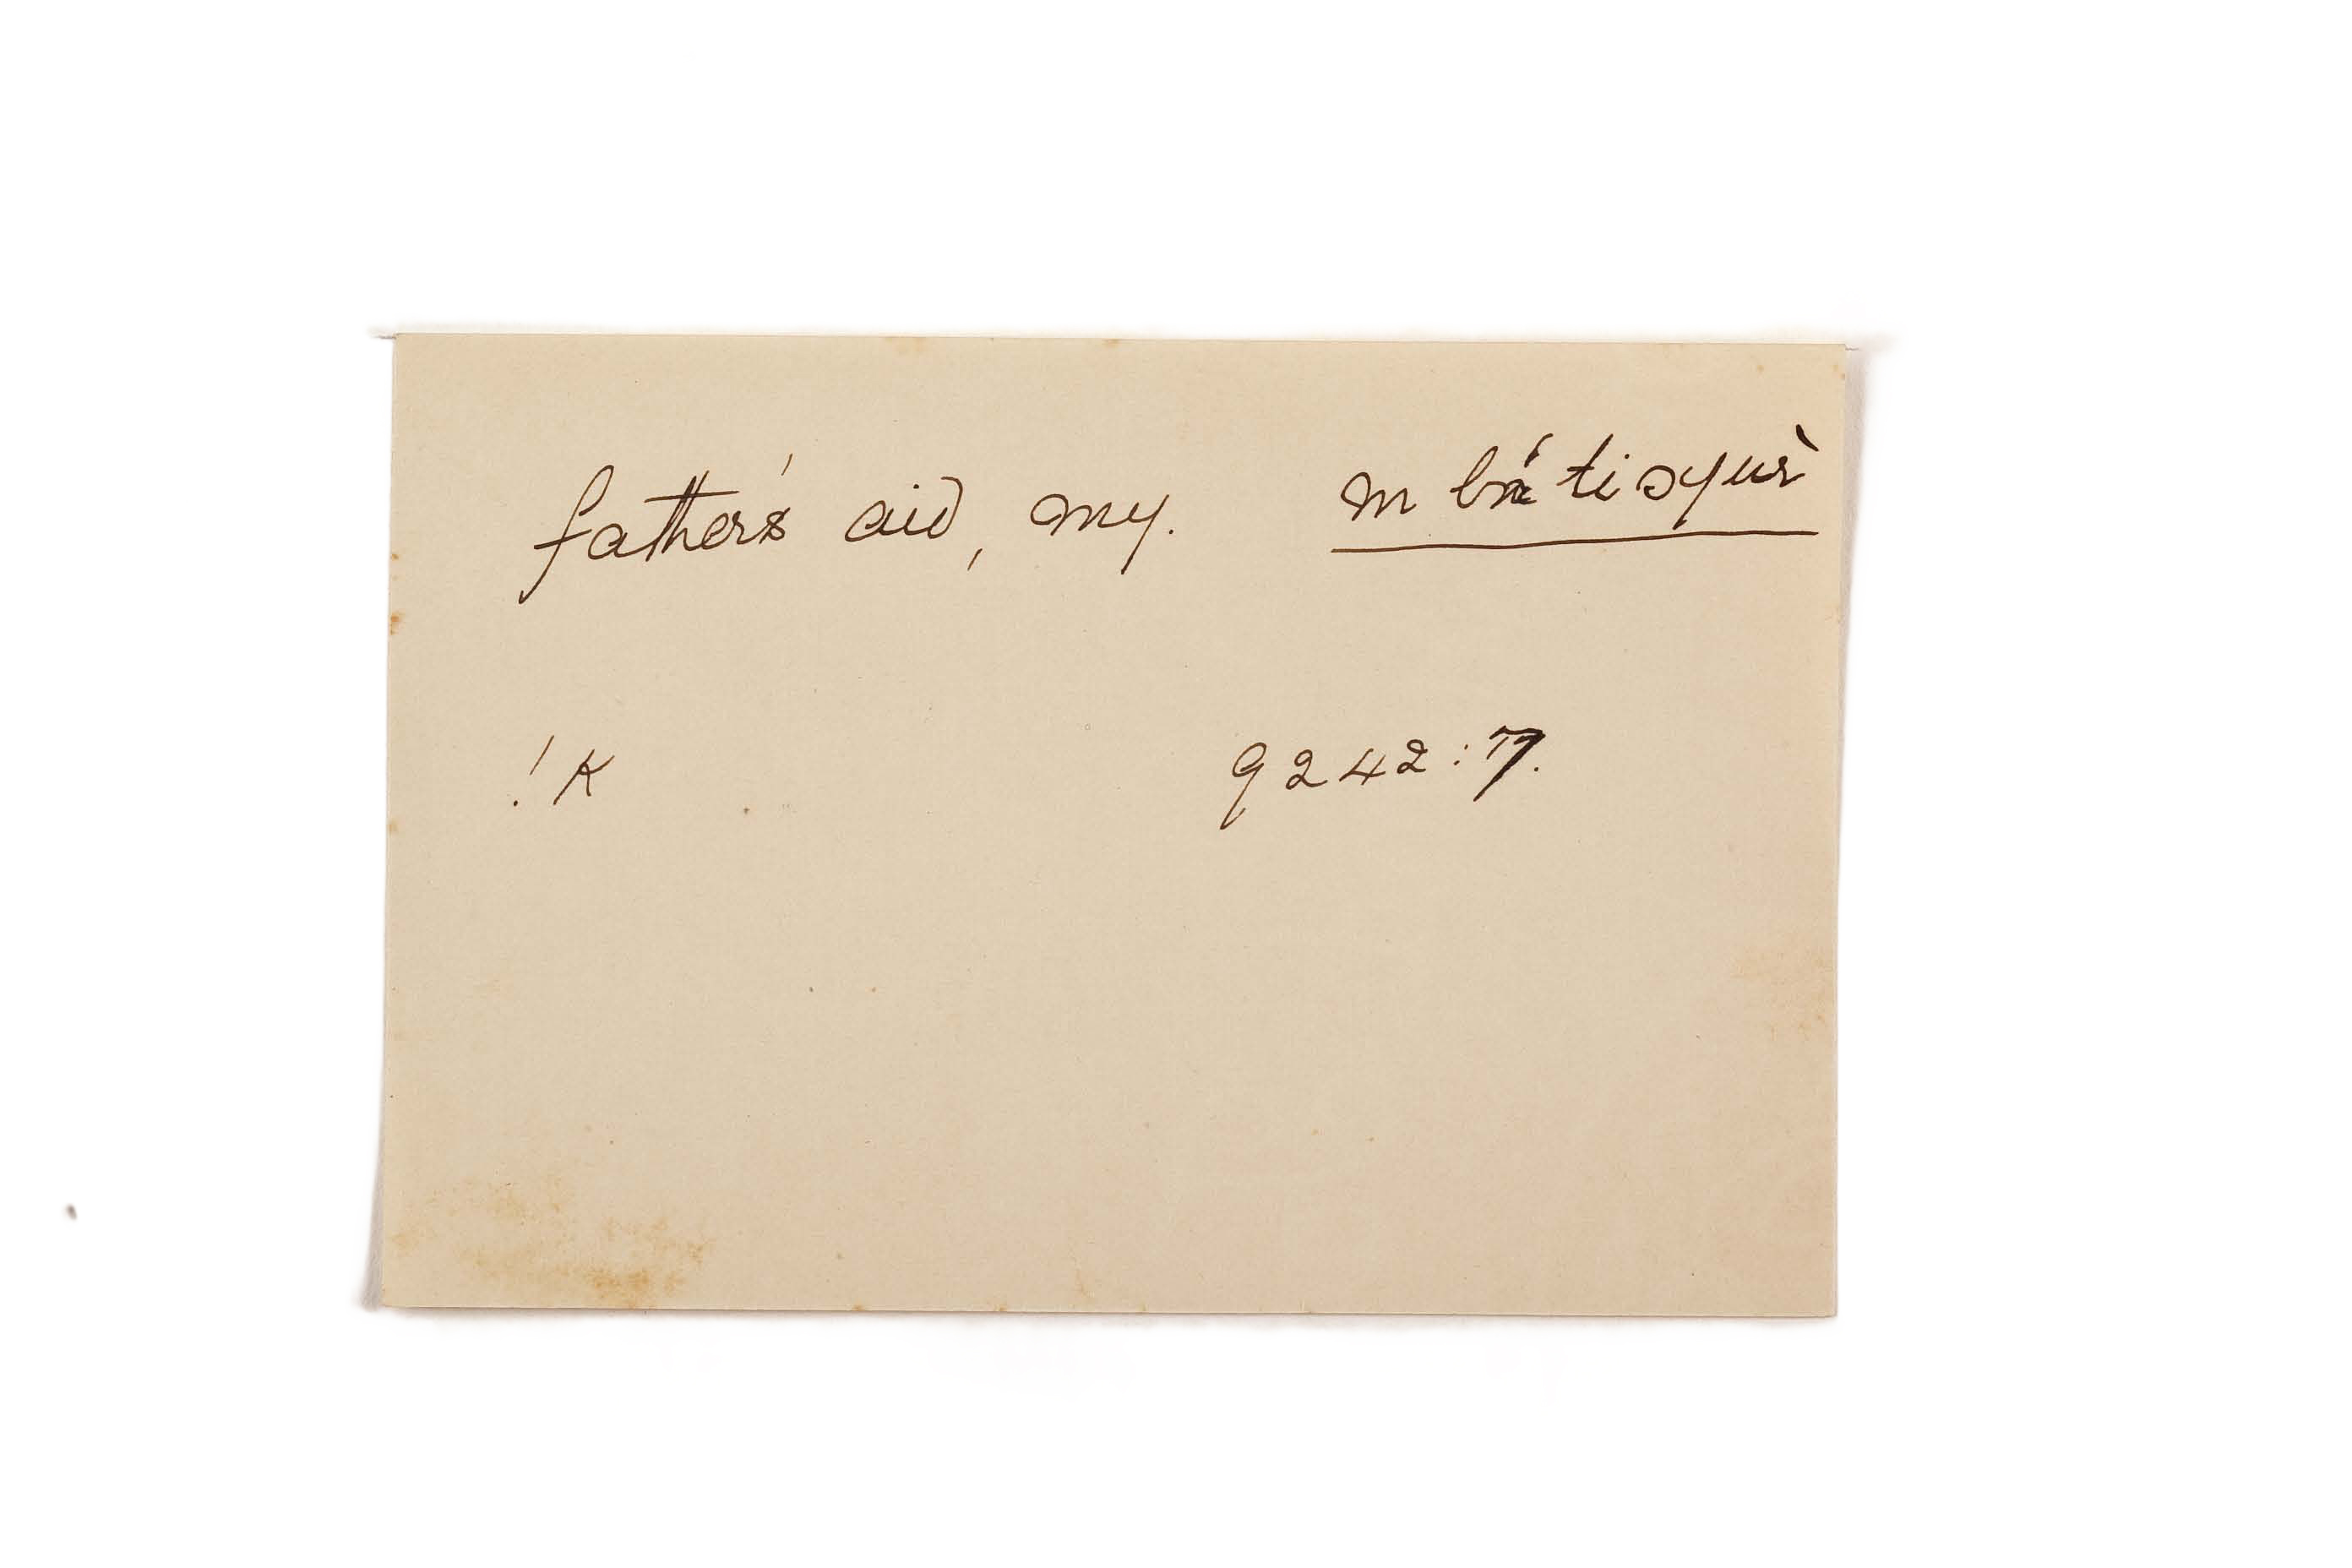 father's aid, my. m bá tisyuè
!K 9242:77.